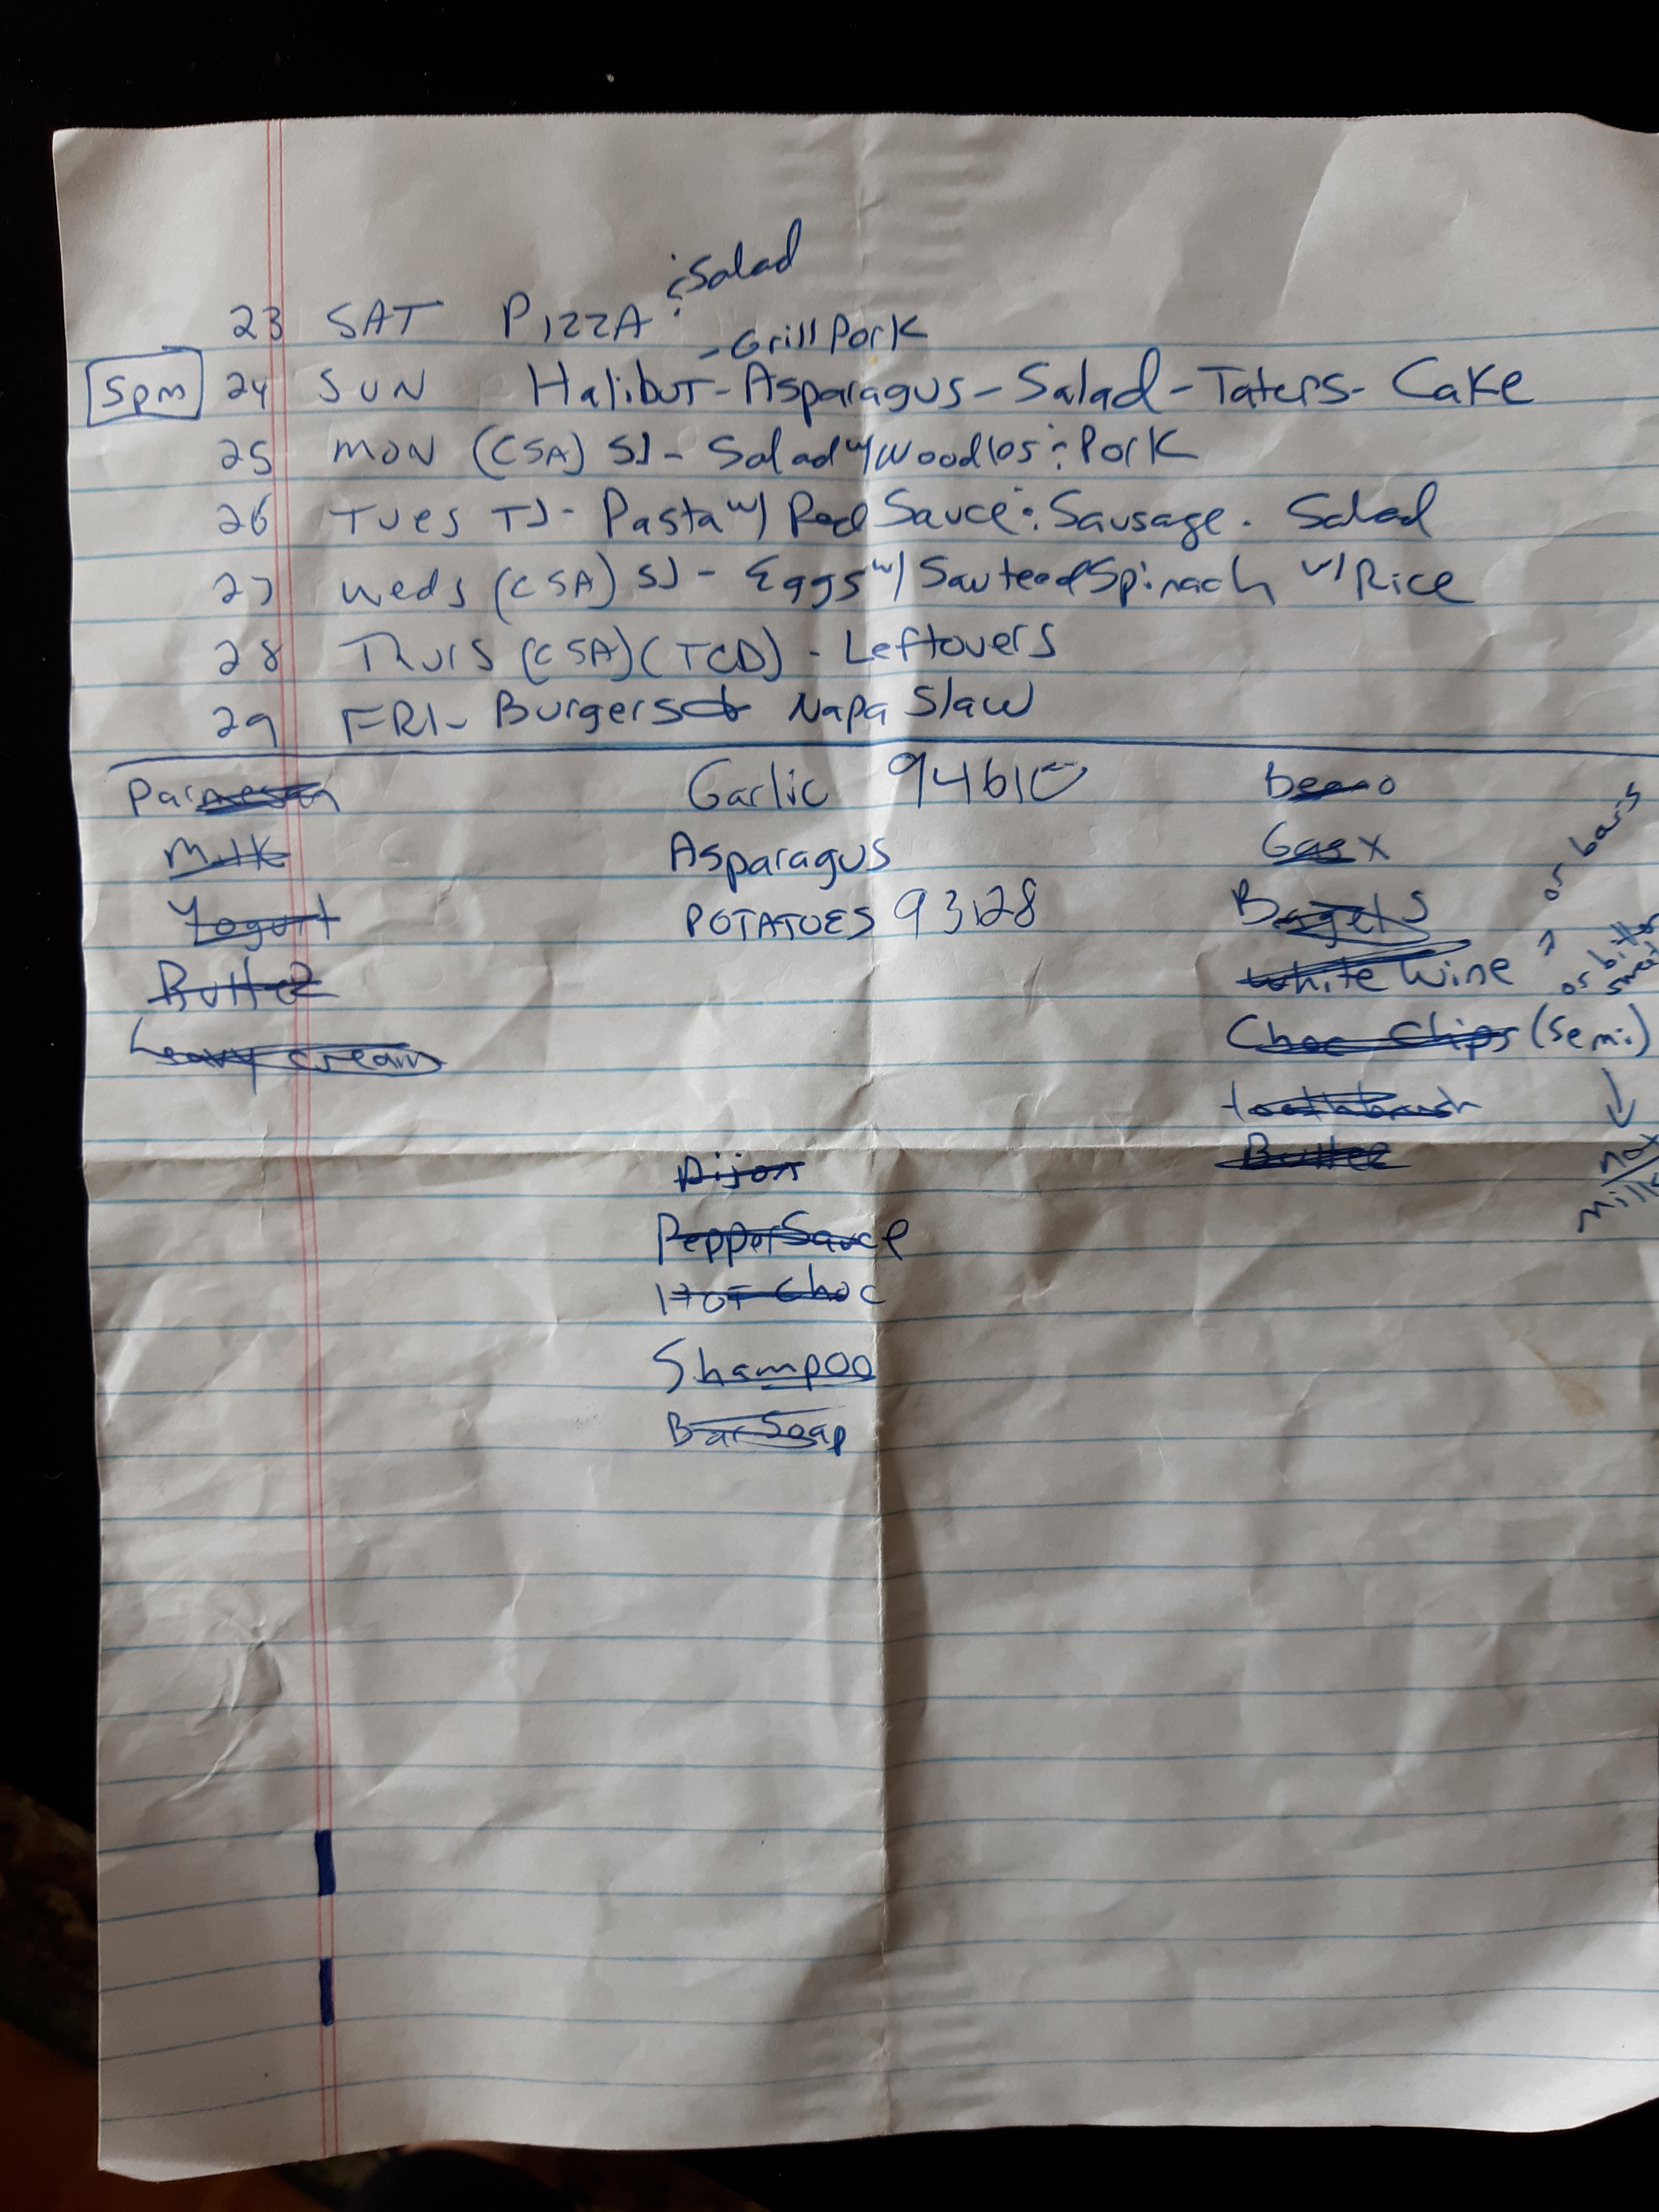 & Salad
23 SAT PIZZA
- Grill Pork
5pm 24 SUN Halibut - Asparagus - Salad - Taters - Cake
25 MON (CSA) SJ - Salad w/ Woodles & Pork
26 Tues TJ - Pasta w/ Red Sauce & Sausage. Salad
27 Weds (CSA) SJ - Eggs w/ Sauteed Spinach w/ Rice
28 Thurs (CSA) (TCD) - Leftovers
29 FRI - Burgers Napa Slaw
Parmesan
Milk
Yogurt
Butter
heavy cream
Garlic 94610
Asparagus
POTATOES 93128
Dijon
Pepper Sauce
HOT Choc
Shampoo
Bar Soap
beano
Gas X
Bagels
White Wine
Choc Chips (Semi)
or bars
or bitter
sweet
toothbrush
Butter
not
milk